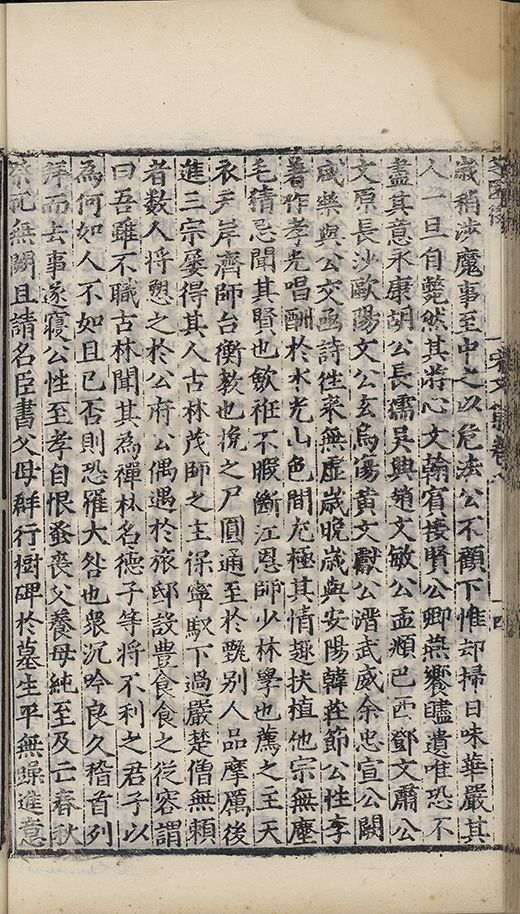 歲稍涉魔事至中之以危法公不顧下惟却掃日味華嚴其
人一旦自斃然其崇心文翰賓接賢公卿燕饗贐遺唯恐不
盡其意永康胡公長孺吳興趙文敏公孟頫巴西鄧文肅公
文原長沙歐陽文公玄烏傷黄文獻公溍武威余忠宣公闕
咸樂與公交函詩徃来無虛歲晚歲與安陽韓莊節公性李
著作孝光唱酬於水光山色間尤極其情趣扶植他宗無塵
毛猜忌聞其賢也斂袵不暇斷江恩師少林學也薦之主天
衣天岸濟師台衡教也挽之尸圓通至於甄别人品摩厲後
進三宗屢得其人古林茂師之主保寧馭下過嚴楚僧無賴
者数人將愬之於公府公偶遇於旅邸設豊食食之從容謂
曰吾雖不職古林聞其為禪林名德子等将不利之君子以
為何如人不如且已否則恐罹大咎也衆沉吟良久稽首列
拜而去事遂寢公性至孝自恨蚤喪父養母純至及亡春秋
祭祀無闕且請名臣書父母群行樹碑於墓生平無躁進意
宋文集卷八
十四